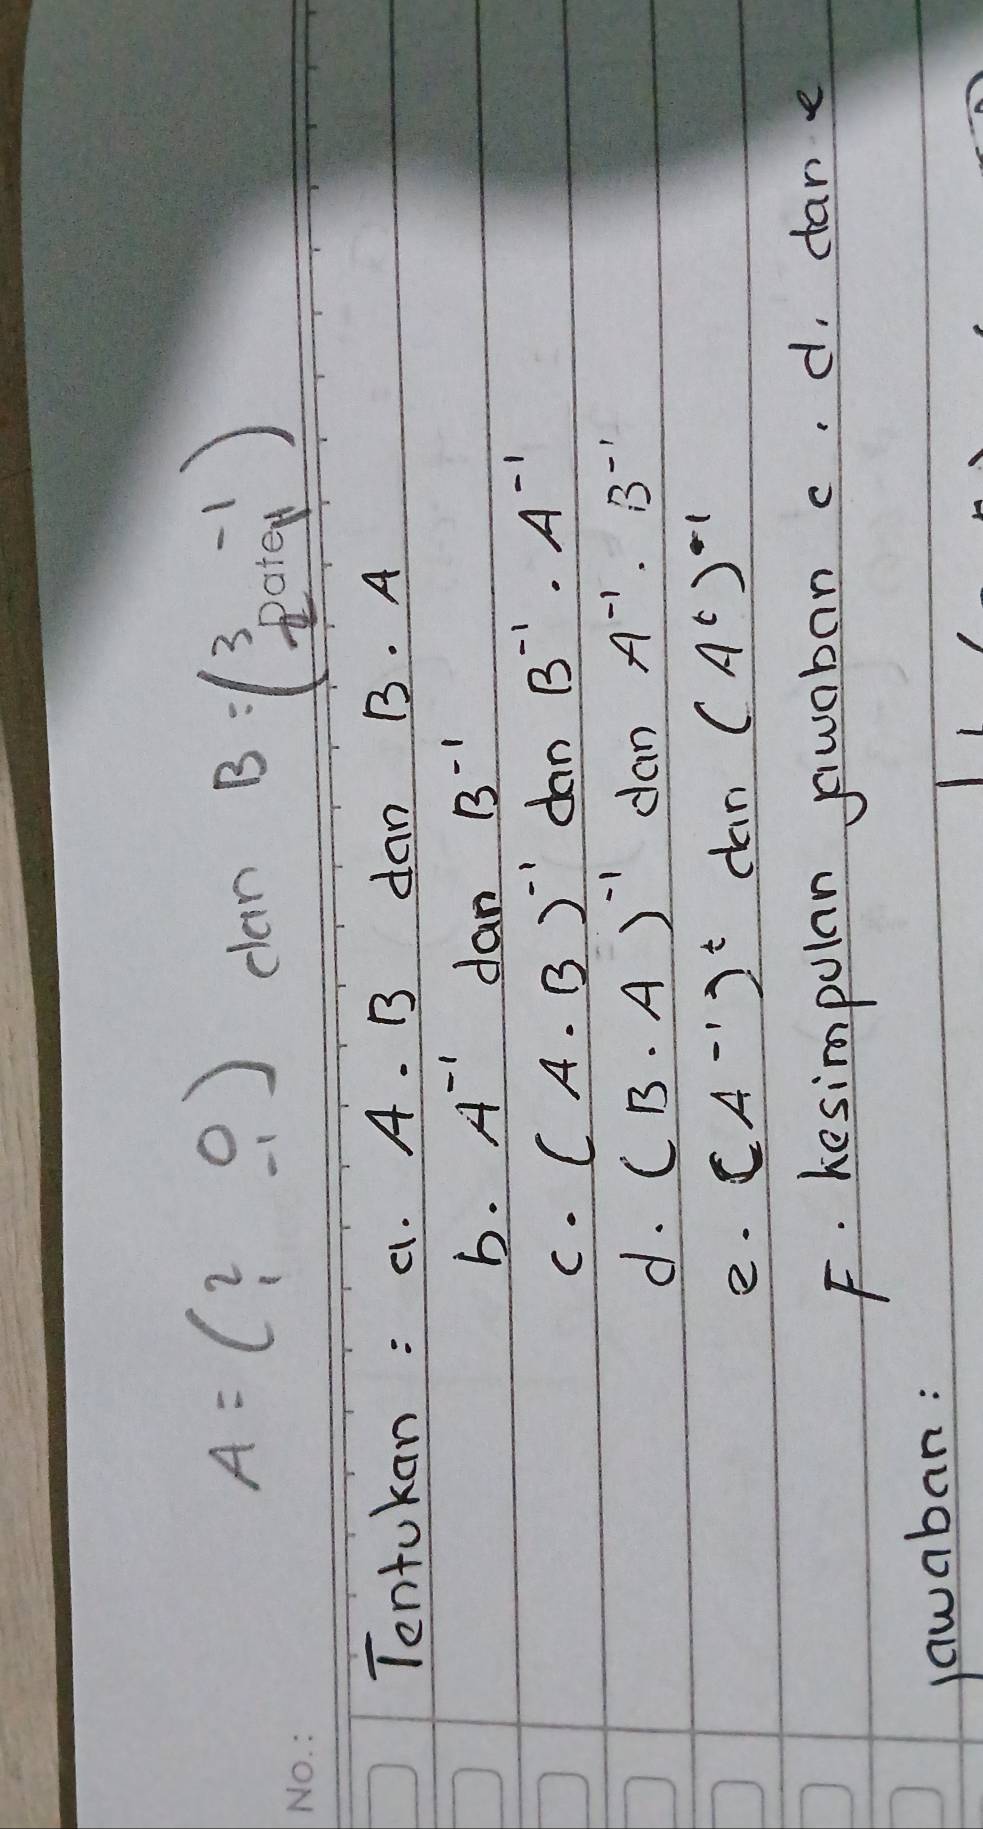 A = ( 2 0 ) dan B = ( 3 -1 )
1 -1
Date
No.:
Tentukan : a. A . B dan B . A
b. A⁻¹ dan B⁻¹
c. ( A . B )⁻¹ dan B⁻¹ . A⁻¹
d. ( B . A )⁻¹ dan A⁻¹ . B⁻¹
e. ( A⁻¹ )ᵗ dan ( Aᵗ )⁻¹
F. kesimpulan jawaban c . d , dan e
jawaban :